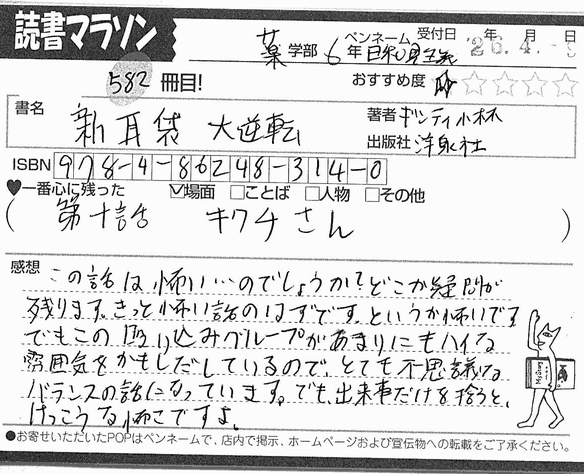 読書マラソン
薬 学部 6 年 ペンネーム 自由見主義 受付日 年 月 日
'26.4.-9
582 冊目! おすすめ度 ☆☆☆☆☆
書名 新耳袋 大逆転 著者 ギンティ小林
出版社 洋泉社
ISBN 978-4-86248-314-0
♥一番心に残った ☑場面 □ことば □人物 □その他
(第十話 キクチさん)
感想
この話は怖い…のでしょうか?どこか疑問が
残ります。きっと怖い話のはずです。というか怖いです。
でもこの殴り込みグループがあまりにもハイな
雰囲気をかもしだしているので、とても不思議な
バランスの話になっています。でも、出来事だけを捨うと、
けっこうな怖さですよ。
Mystery
●お寄せいただいたPOPはペンネームで、店内で掲示、ホームページおよび宣伝物への転載をご了承ください。